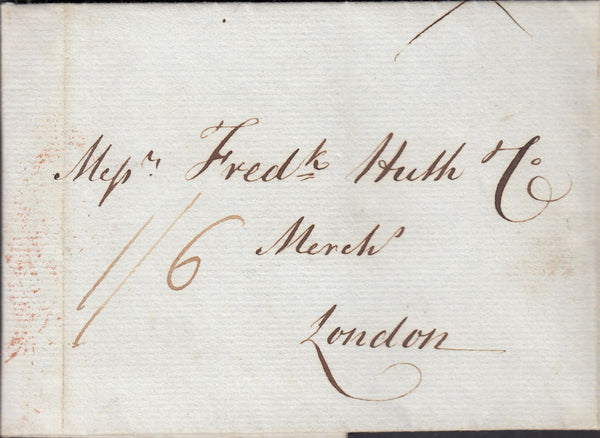 Messrs. Fredk Huth & Co
1/6
Merchs
London